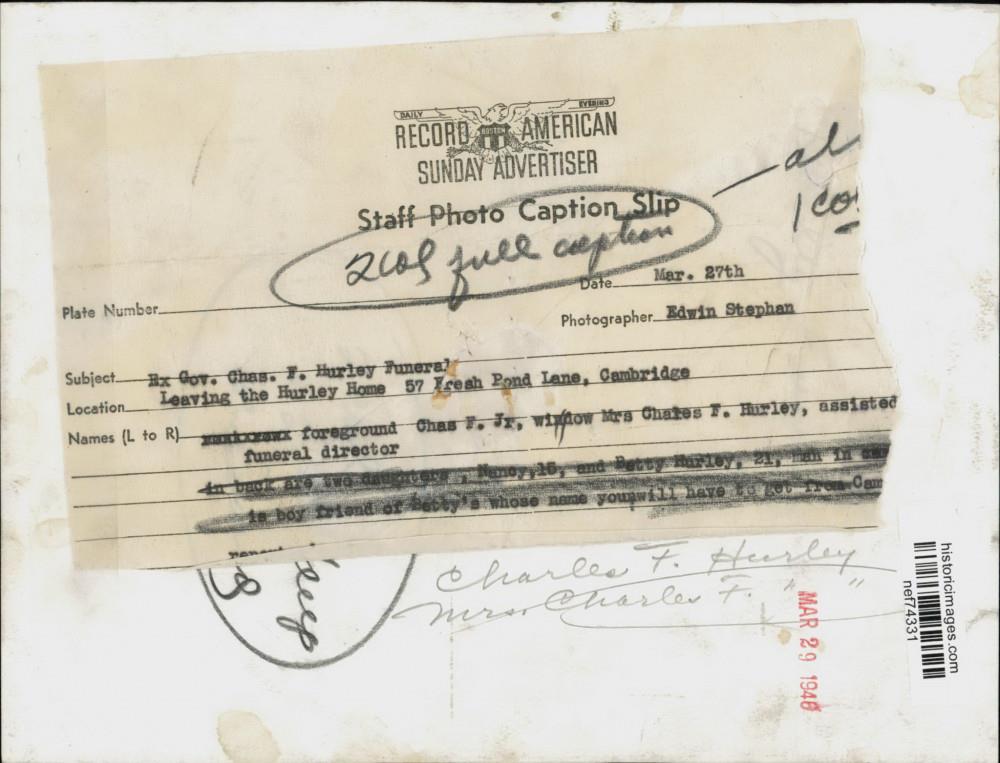 DAILY EVENING
RECORD BOSTON AMERICAN
SUNDAY ADVERTISER
Staff Photo Caption Slip
2 col full caption
1 co
Date Mar. 27th
Plate Number
Photographer Edwin Stephan
Subject Ex Gov. Chas. F. Hurley Funeral
Location Leaving the Hurley Home 57 Fresh Pond Lane, Cambridge
Names (L to R) foreground Chas F. Jr, window Mrs Chales F. Hurley, assisted
funeral director
in back are two daughters, Nancy,15, and Betty Hurley, 21, man in
is boy friend of Betty's whose name you will have to get from
Charles F. Hurley
Mrs. Charles F. " "
MAR 29 1946
historicimages.com
nef74331